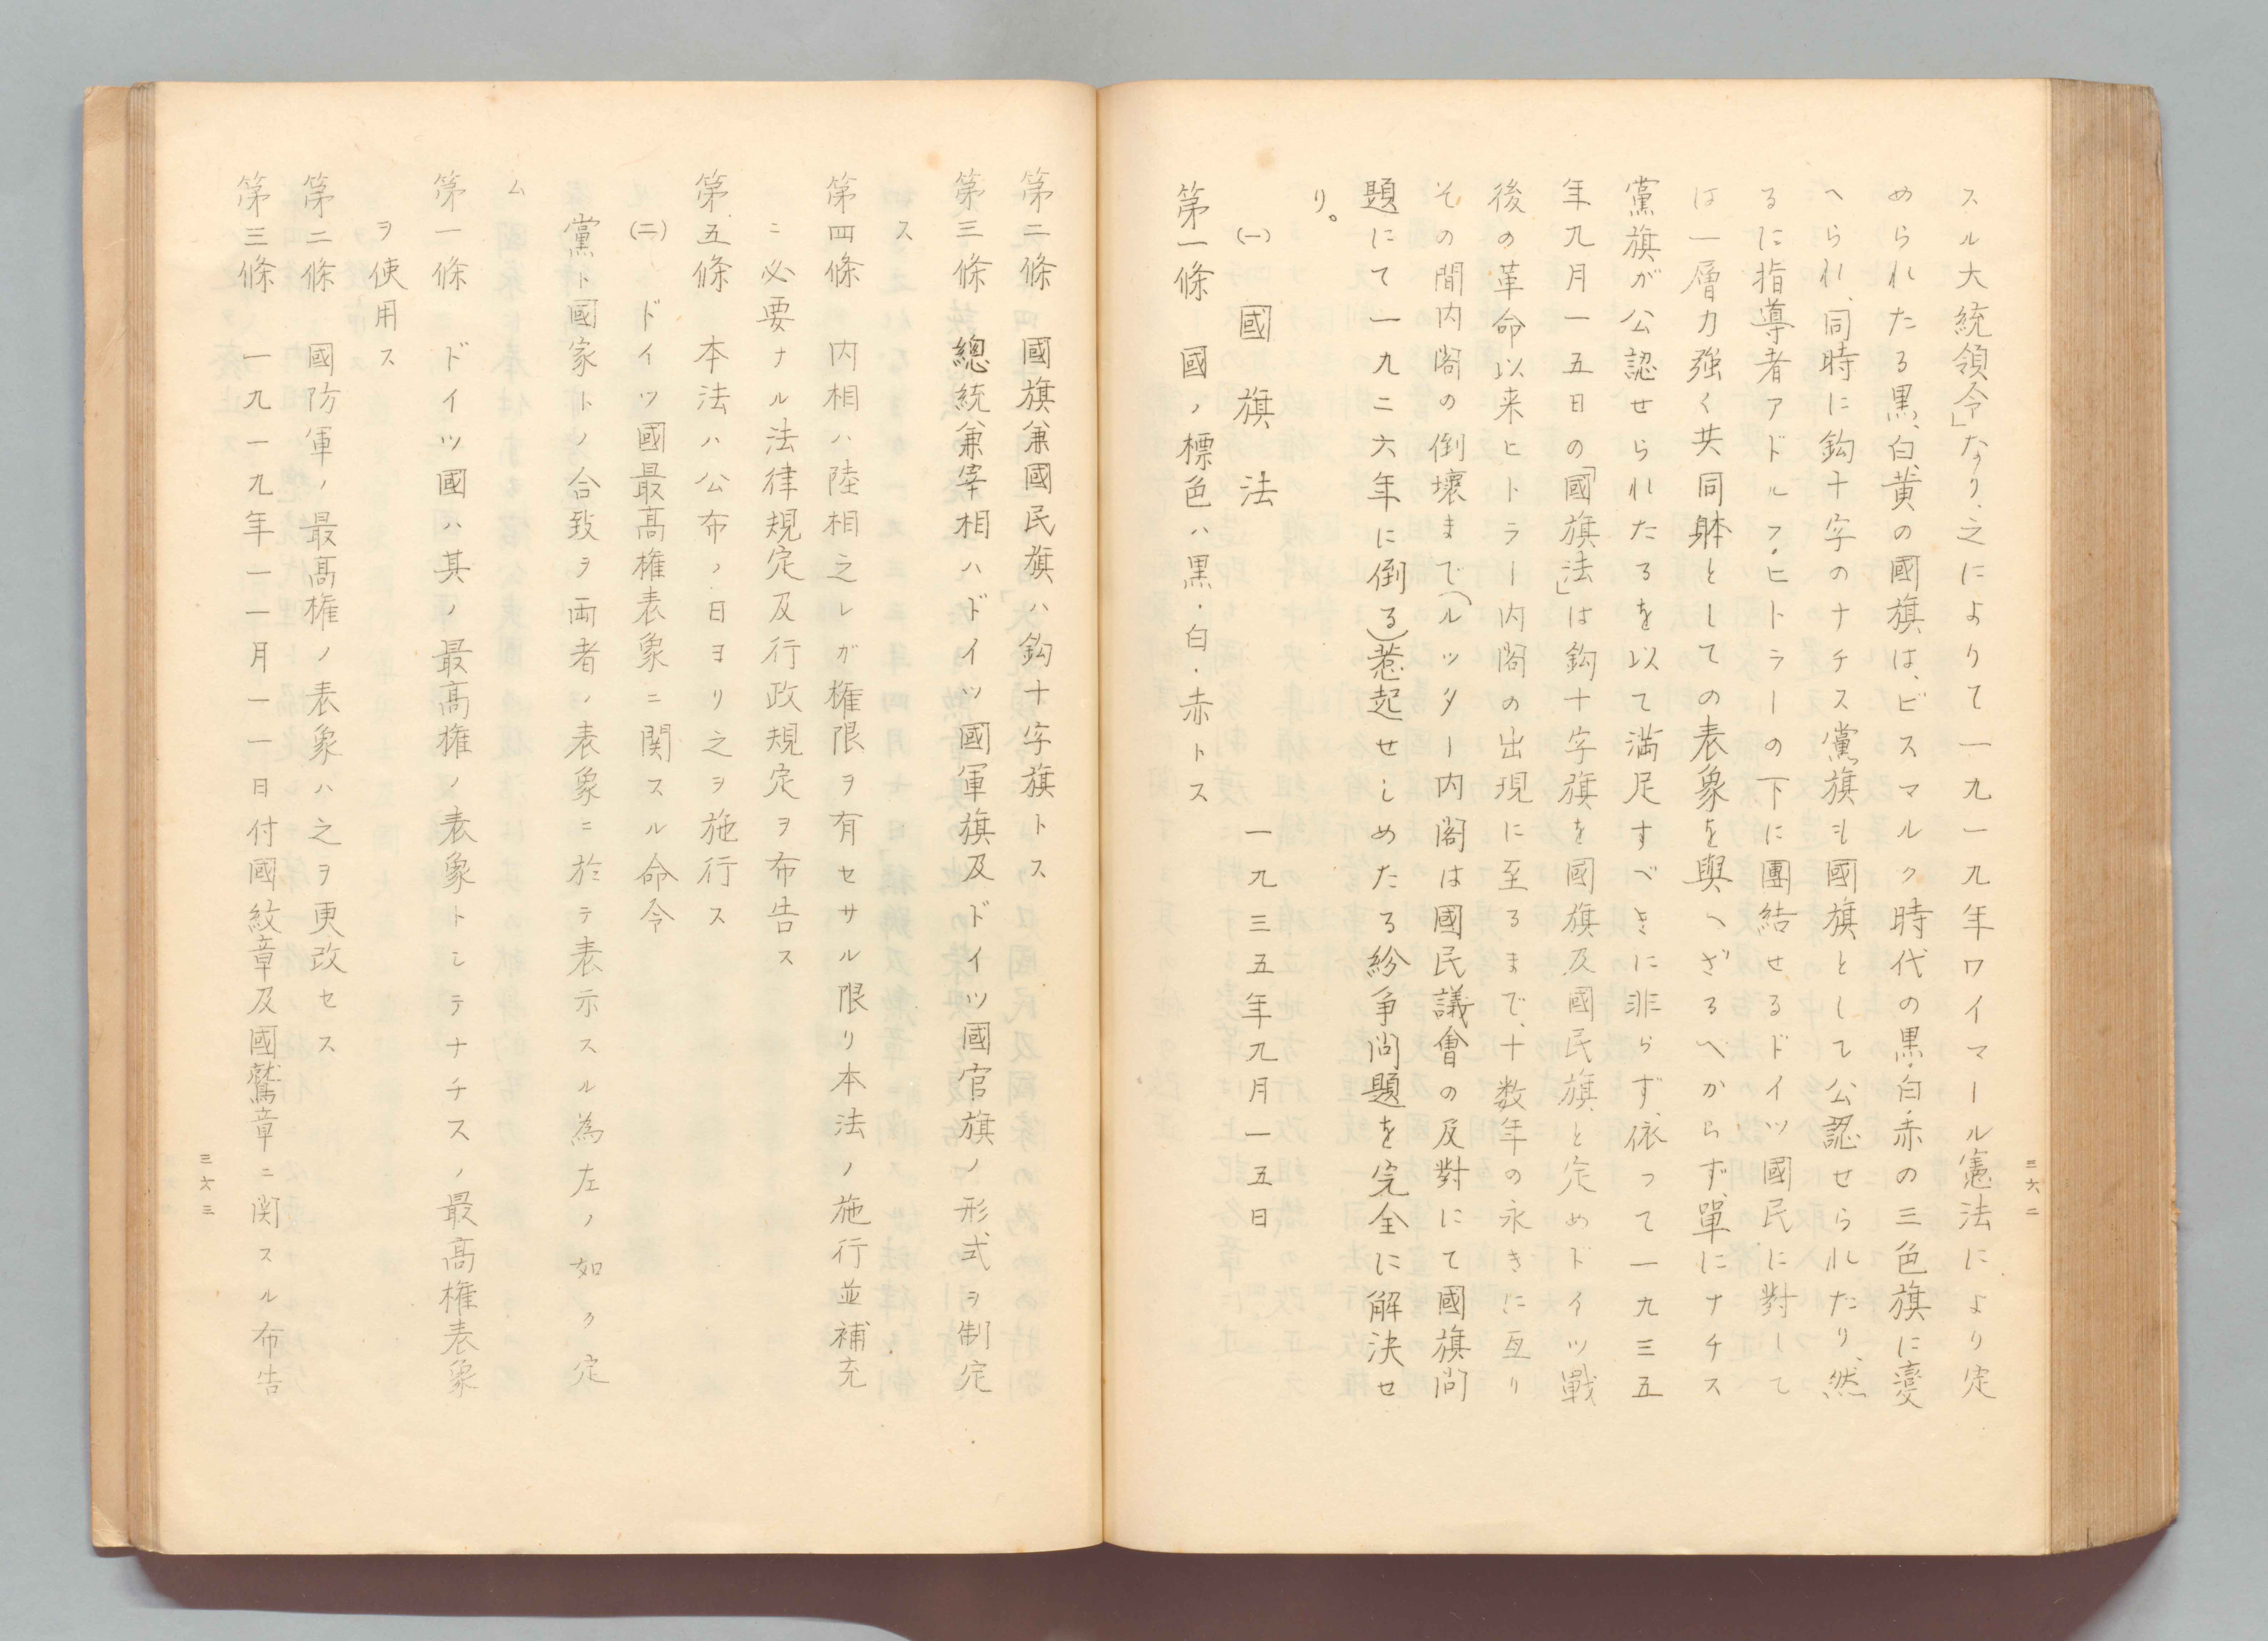 三六二
スル大統領令」なり、之によりて一九一九年ワイマール憲法により定
められたる黒、白、黄の國旗は、ビスマルク時代の黒・白・赤の三色旗に變
へられ、同時に鈎十字のナチス黨旗も國旗として公認せられたり、然
るに指導者アドルフ・ヒトラーの下に團結せるドイツ國民に對して
は一層力強く共同躰としての表象を與へざるべからず、單にナチス
黨旗が公認せられたるを以て満足すべきに非らず、依つて一九三五
年九月一五日の「國旗法」は鈎十字旗を國旗及國民旗と定めドイツ戰
後の革命以来ヒトラー内閣の出現に至るまで、十数年の永きに亙り
その間内閣の倒壊まで(ルッター内閣は國民議會の反對にて國旗問
題にて一九二六年に倒る)惹起せしめたる紛爭問題を完全に解決せ
り。
(一)　國旗法　一九三五年九月一五日
第一條　國ノ標色ハ黒・白・赤トス
第二條　國旗兼國民旗ハ鈎十字旗トス
第三條　總統兼宰相ハドイツ國軍旗及ドイツ國官旗ノ形式ヲ制定
ス
第四條　内相ハ陸相之レガ権限ヲ有セサル限リ本法ノ施行並補充
ニ必要ナル法律規定及行政規定ヲ布告ス
第五條　本法ハ公布ノ日ヨリ之ヲ施行ス
(二)　ドイツ國最高権表象ニ関スル命令
黨ト國家トノ合致ヲ両者ノ表象ニ於テ表示スル為左ノ如ク定
ム
第一條　ドイツ國ハ其ノ最高権ノ表象トシテナチスノ最高権表象
ヲ使用ス
第二條　國防軍ノ最高権ノ表象ハ之ヲ更改セス
第三條　一九一九年一一月一一日付國紋章及國鷲章ニ関スル布告
三六三